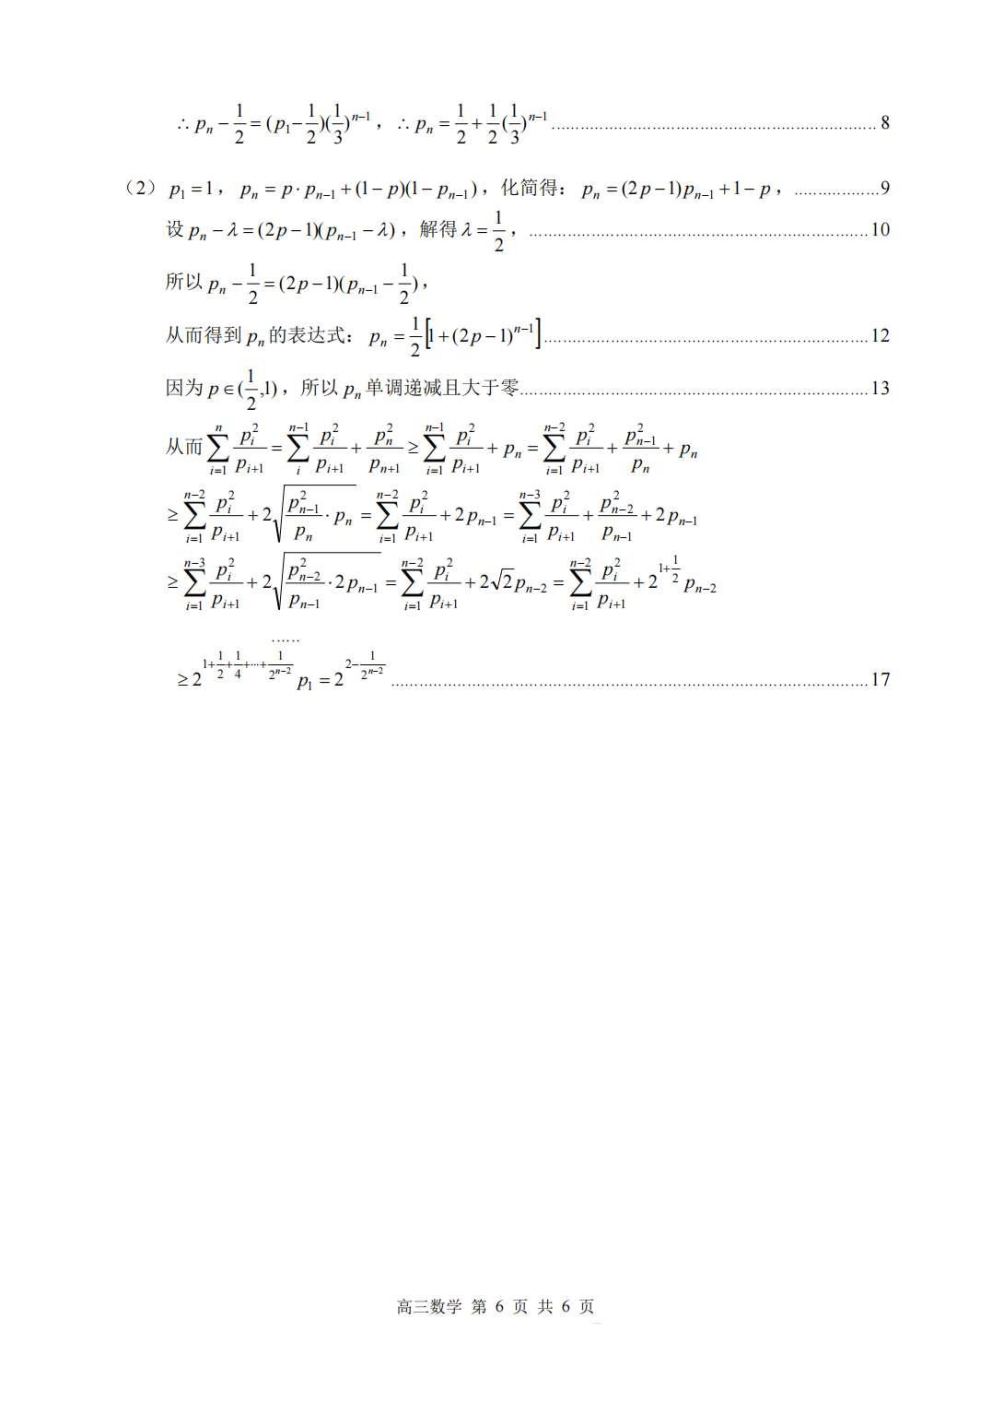 ∴ pₙ − 1/2 = (p₁ − 1/2)(1/3)ⁿ⁻¹，∴ pₙ = 1/2 + 1/2(1/3)ⁿ⁻¹ ........ 8
（2）p₁ = 1，pₙ = p · pₙ₋₁ + (1 − p)(1 − pₙ₋₁)，化简得：pₙ = (2p − 1)pₙ₋₁ + 1 − p，........ 9
设 pₙ − λ = (2p − 1)(pₙ₋₁ − λ)，解得 λ = 1/2，........ 10
所以 pₙ − 1/2 = (2p − 1)(pₙ₋₁ − 1/2)，
从而得到 pₙ 的表达式：pₙ = 1/2[1 + (2p − 1)ⁿ⁻¹] ........ 12
因为 p ∈ (1/2, 1)，所以 pₙ 单调递减且大于零 ........ 13
从而 ∑_{i=1}^{n} p_i²/p_{i+1} = ∑_{i}^{n−1} p_i²/p_{i+1} + p_n²/p_{n+1} ≥ ∑_{i=1}^{n−1} p_i²/p_{i+1} + p_n = ∑_{i=1}^{n−2} p_i²/p_{i+1} + p_{n−1}²/p_n + p_n
≥ ∑_{i=1}^{n−2} p_i²/p_{i+1} + 2√(p_{n−1}²/p_n · p_n) = ∑_{i=1}^{n−2} p_i²/p_{i+1} + 2p_{n−1} = ∑_{i=1}^{n−3} p_i²/p_{i+1} + p_{n−2}²/p_{n−1} + 2p_{n−1}
≥ ∑_{i=1}^{n−3} p_i²/p_{i+1} + 2√(p_{n−2}²/p_{n−1} · 2p_{n−1}) = ∑_{i=1}^{n−2} p_i²/p_{i+1} + 2√2 p_{n−2} = ∑_{i=1}^{n−2} p_i²/p_{i+1} + 2^{1+1/2} p_{n−2}
……
≥ 2^{1+1/2+1/4+⋯+1/2^{n−2}} p₁ = 2^{2−1/2^{n−2}} ........ 17
高三数学 第 6 页 共 6 页